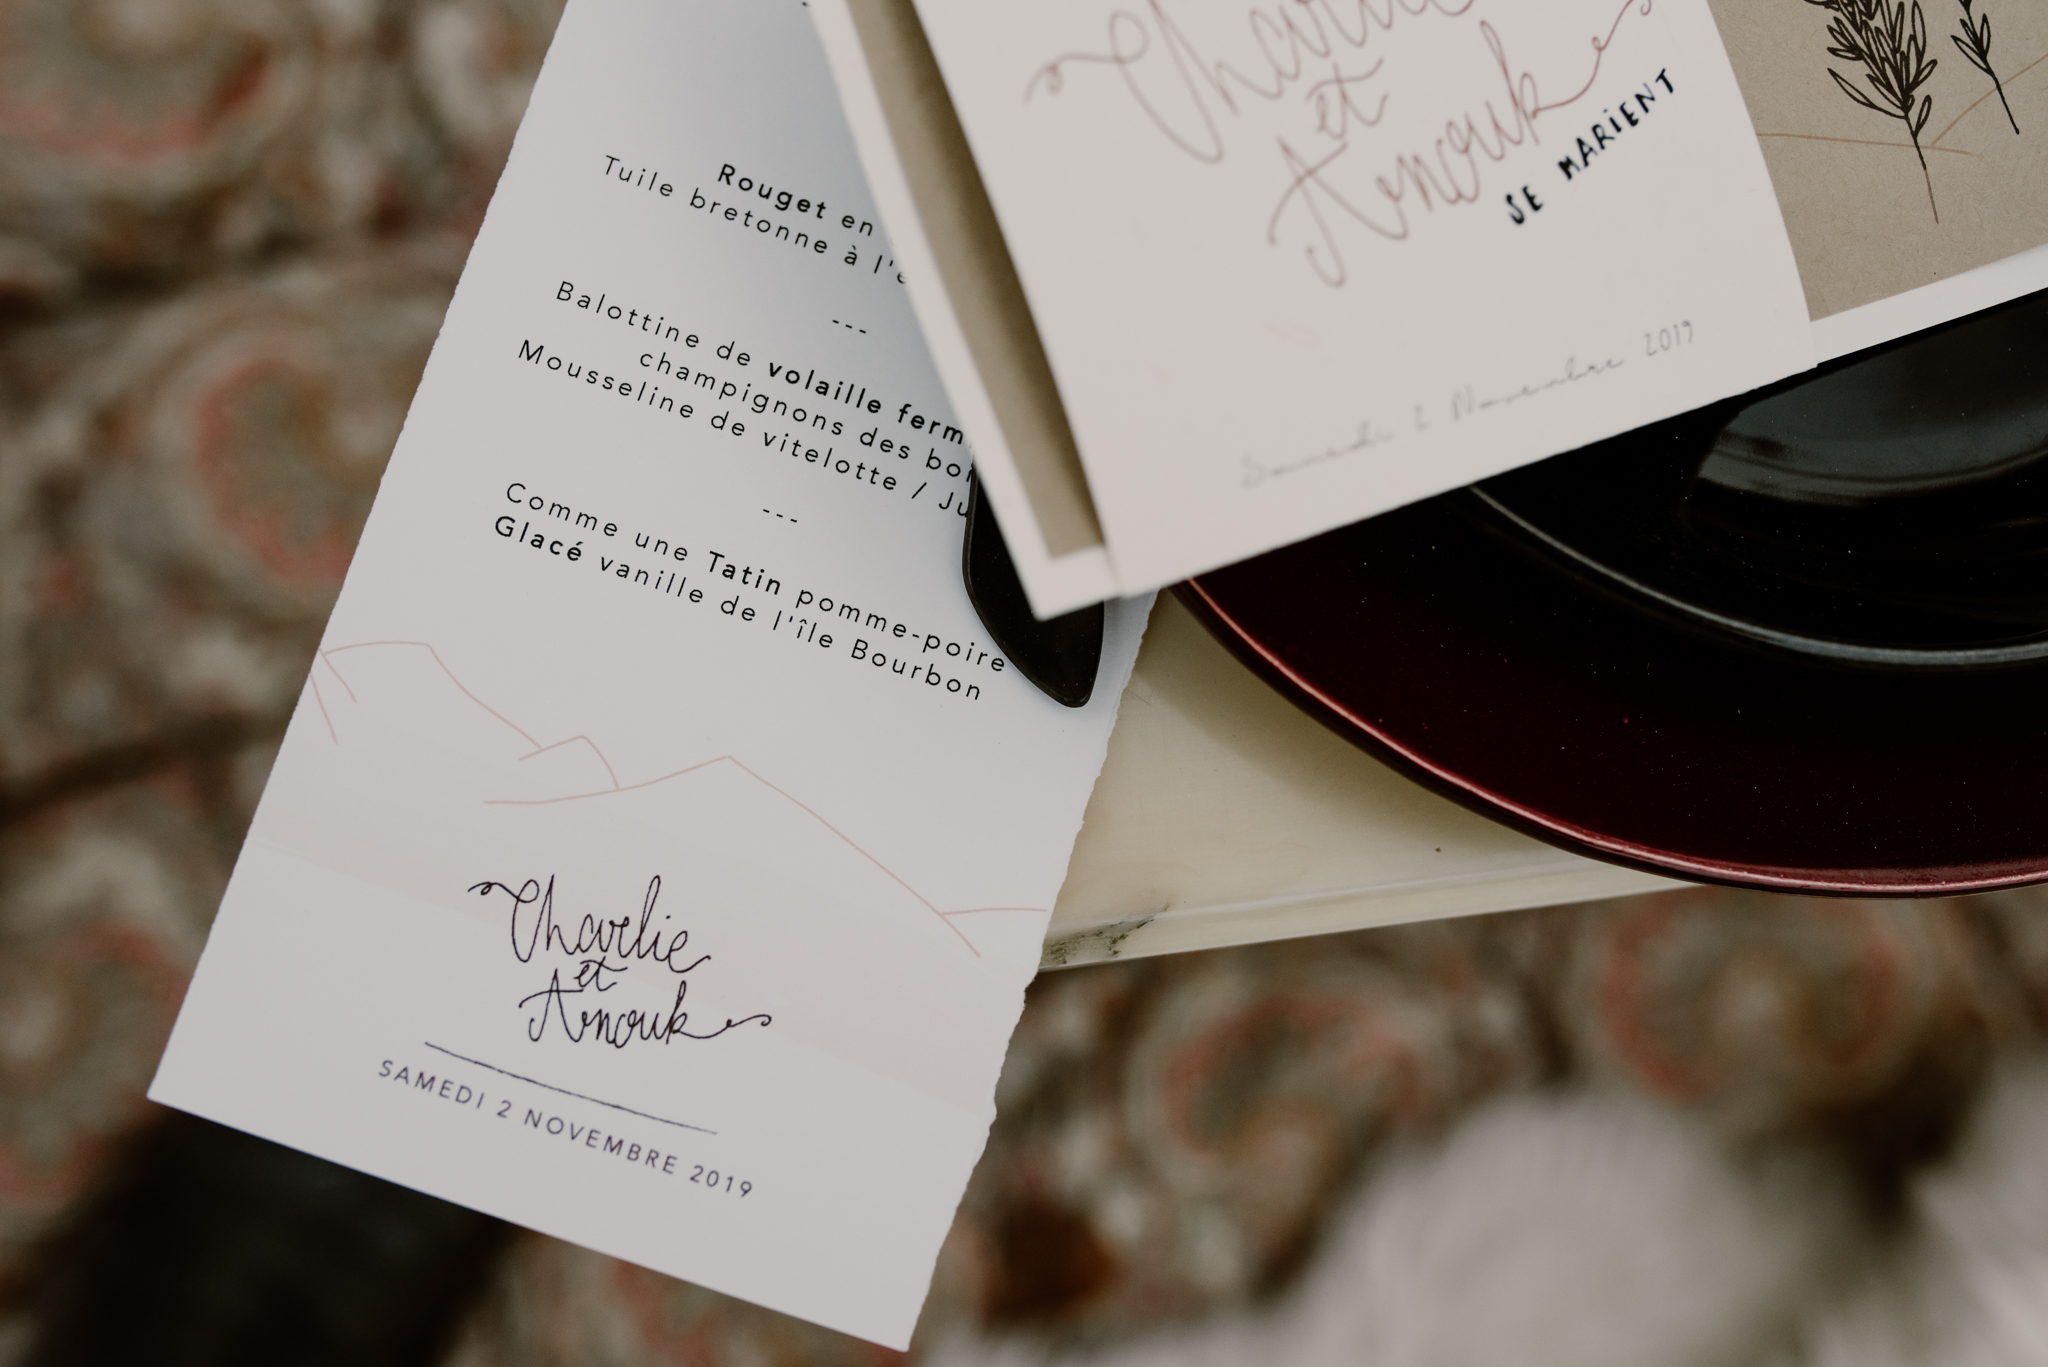 Rouget en
Tuile bretonne à
---
Balottine de volaille
champignons des
Mousseline de vitelotte /
---
Comme une Tatin pomme-poire
Glacé vanille de l'île Bourbon
Charlie
et
Anouk
SAMEDI 2 NOVEMBRE 2019
Charlie
et
Anouk
SE MARIENT
Samedi 2 Novembre 2019